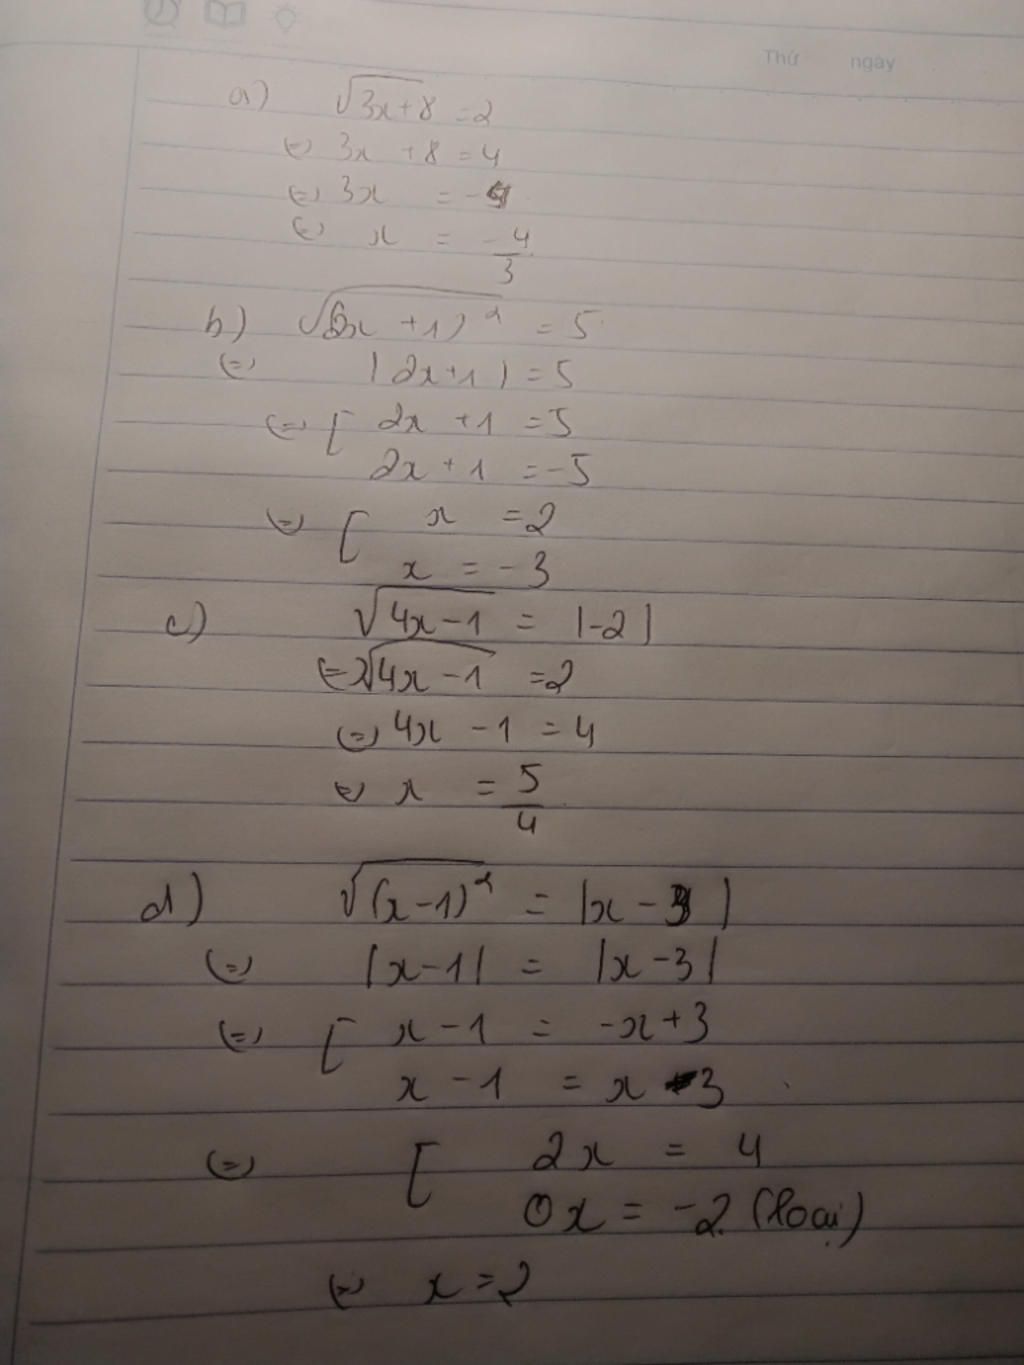 Thứ ngày
a) √3x+8 = 2
⇔ 3x + 8 = 4
⇔ 3x = -4
⇔ x = -4/3
b) √(2x + 1)² = 5
⇔ |2x+1| = 5
⇔ [ 2x + 1 = 5
2x + 1 = -5
⇔ [ x = 2
x = -3
c) √4x-1 = |-2|
⇔ √4x-1 = 2
⇔ 4x - 1 = 4
⇔ x = 5/4
d) √(x-1)² = |x-3|
⇔ |x-1| = |x-3|
⇔ [ x-1 = -x+3
x-1 = x-3
⇔ [ 2x = 4
0x = -2 (loại)
⇔ x = 2